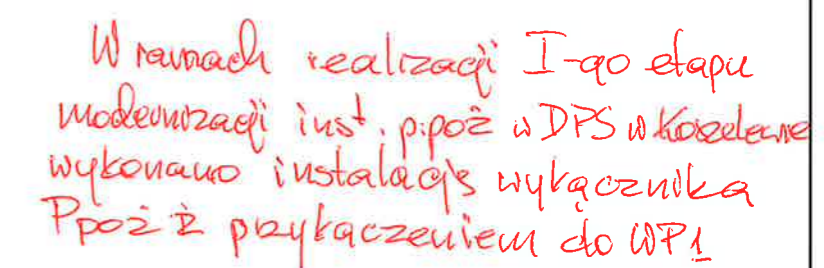 W ramach realizacji I-go etapu
modernizacji inst. p.poż w DPS w Koszelewie
wykonano instalację wyłącznika
Ppoż z przyłączeniem do WP1